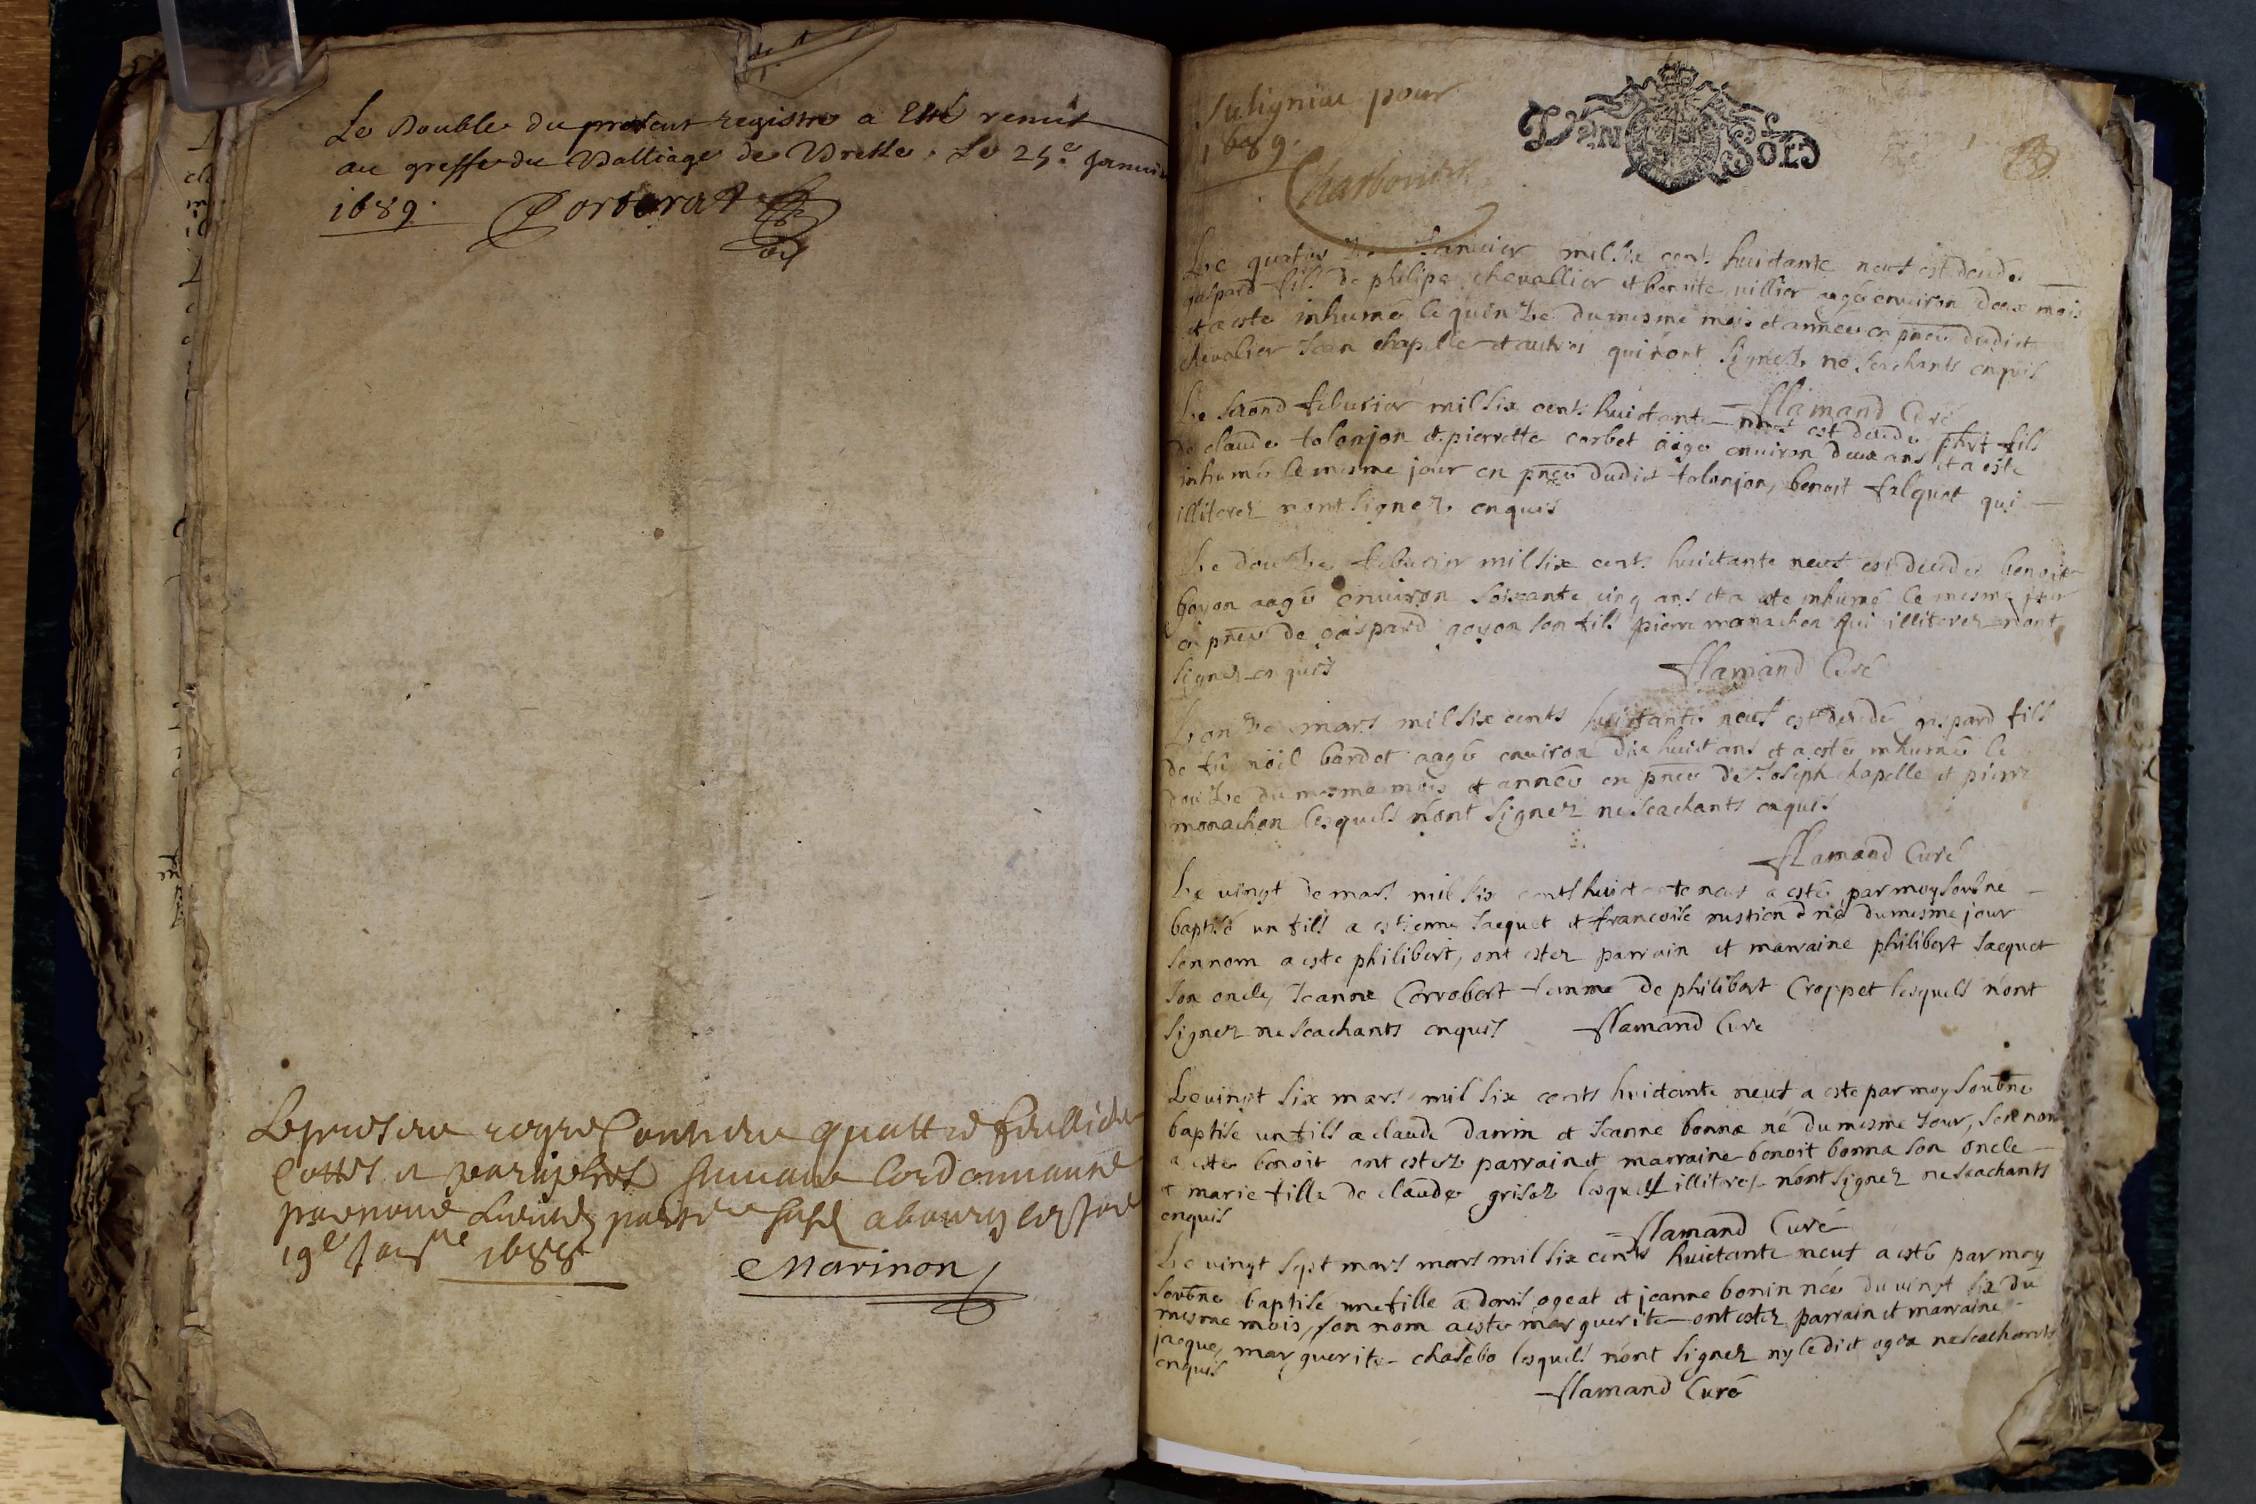 Le Double du present registre a Esté remis
au greffe du Balliage de Bresse. Le 25e Janvie
1689.
Le presen regre Contien quattre feullie
Cottes et parraphes suivant l'ordonnance
19e 1688
Marinon
Suligniat pour
1689.
Charbonier
D'EN SOLS
Le quatorze Janvier mil six cent huictante neuf est decede
gaspard fils de philipe chevallier et benoite villier aagé environ deux mois
et a esté inhumé le quinze du mesme mois et année en pnce dudict
chevalier Jean chapelle et autres qui n'ont signez ne scachants enquis
flamand Curé
Le second febvrier mil six cent huictante neuf est decede phrt fils
de claude tolonjon et pierrette corbet aage environ deux ans et a esté
inhumé le mesme jour en pnce dudict tolonjon, benoit falquet qui
illiterez n'ont signez enquis
Le douze febvrier mil six cent huictante neuf est decede benoit
goyon aagé environ soixante cinq ans et a este inhumé le mesme jour
en pnce de gaspard goyon son fils pierre monachon qui illiterez n'ont
signez enquis
flamand Curé
L'onze mars mil six cents huictante neuf est decedé gaspard fils
de fû nöel bardet aagé environ dix huict ans et a esté inhumé le
douze du mesme mois et année en pnce de Joseph chapelle et pierre
monachon lesquels n'ont signez ne scachants enquis
flamand Curé
Le vingt de mars mil six cents huictante neuf a esté par moy soubné
baptisé un fils a estienne Jacquet et francoise né du mesme jour
son nom a este philibert, ont estez parrain et marraine philibert Jacquet
son oncle, Jeanne Corrobert femme de philibert Croppet lesquels n'ont
signez ne scachants enquis flamand Curé
Le vingt six mars mil six cents huictante neuf a esté par moy soubne
baptise un fils a claude danin et Jeanne bonna né du mesme Jour, son nom
a esté benoit ont estez parrain et marraine benoit bonna son oncle
et marie fille de claude grisoz lesquels illiterez n'ont signez ne scachants
enquis
flamand Curé
Le vingt sept mars mars mil six cents huictante neuf a esté par moy
soubne baptisé une fille a denis ogeat et jeanne bonin née du vingt six du
mesme mois, son nom a este marguerite ont estez parrain et marraine
jacque, marguerite lesquels n'ont signez ny ledict ogea ne scachants
enquis
flamand Curé